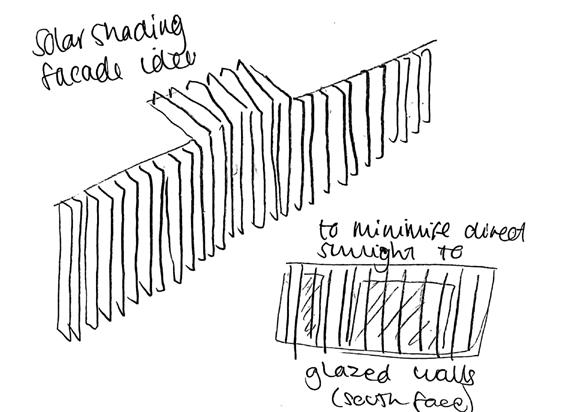 solar shading
facade idea
to minimise direct
sunlight to
glazed walls
(south face)